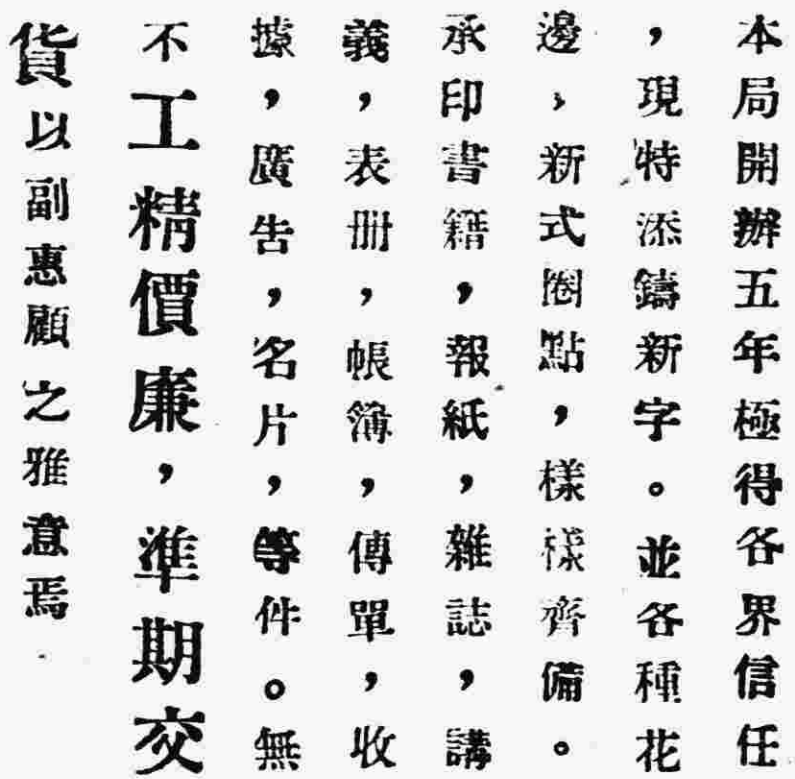 本局開辦五年極得各界信任
，現特添鑄新字。並各種花
邊，新式圈點，樣樣齊備。
承印書籍，報紙，雜誌，講
義，表册，帳簿，傳單，收
據，廣告，名片，等件。無
不工精價廉，準期交
貨以副惠顧之雅意焉